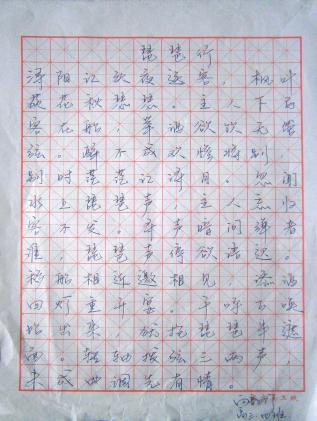 琵琶行
浔阳江头夜送客，枫叶
荻花秋瑟瑟。主人下马
客在船，举酒欲饮无管
弦。醉不成欢惨将别，
别时茫茫江浸月。忽闻
水上琵琶声，主人忘归
客不发。寻声暗问弹者
谁，琵琶声停欲语迟。
移船相近邀相见，添酒
回灯重开宴。千呼万唤
始出来，犹抱琵琶半遮
面。转轴拨弦三两声，
未成曲调先有情。
高三．四班